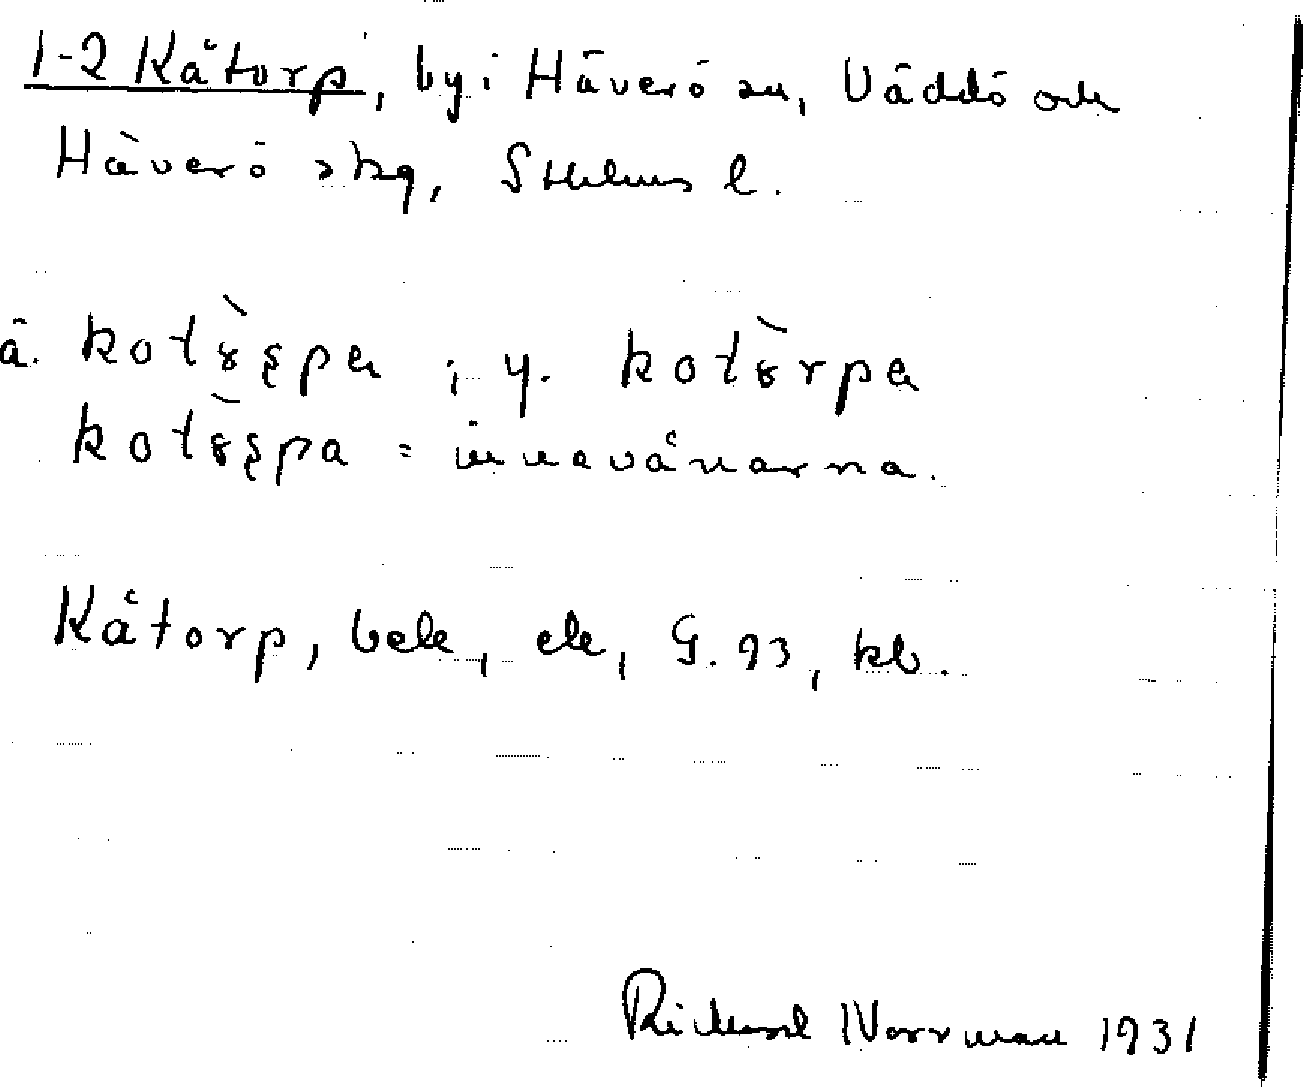 1-2 Kåtorp, by i Häverö sn, Väddö och
Häverö skg, Sthlms l.
ä. kotɤ̀r̨pa ; y. kotɤ̀rpa
kotɤ̀r̨pa = innevånarna.
Kåtorp, bek, ek, G. 93, kb.
Rickard Norrman 1931